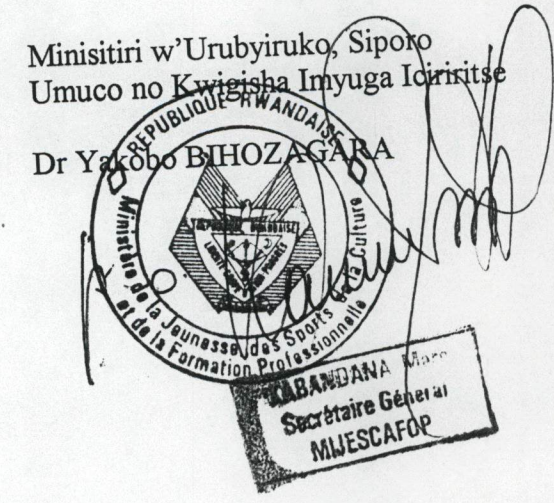 Minisitiri w'Urubyiruko, Siporo
Umuco no Kwigisha Imyuga Iciriritse
Dr Yakobo BIHOZAGARA
REPUBLIQUE RWANDAISE
Ministère de la Jeunesse, des Sports de la Culture
et de la Formation Professionnelle
KABANDANA Marc
Secrétaire Général
MIJESCAFOP